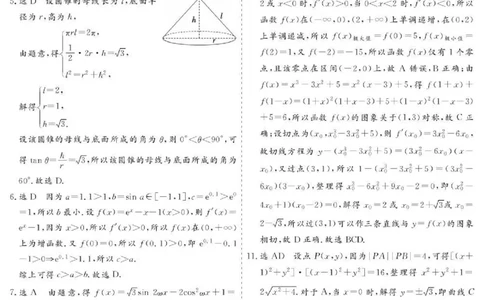 5.选 D 设圆锥的母线长为 l,底面半
径为 r,高为 h,
由题意,得{πrl=2π, 1/2·2r·h=√3, l²=r²+h²,
解得{l=2, r=1, h=√3.
设该圆锥的母线与底面所成的角为 θ,则 0°<θ<90°,可
得 tan θ=h/r=√3,所以该圆锥的母线与底面所成的角为
60°.故选 D.
6.选 D 因为 a=1.1>1,b=sin a∈[-1,1],c=e^0.1>e^0
=1,所以 b 最小.设 f(x)=e^x-x-1(x>0),则 f′(x)=
e^x-1,因为 x>0,所以 f′(x)>0,所以 f(x)在(0,+∞)
上为增函数,又 f(0)=0,所以 f(0.1)>0,即 e^0.1-0.1
-1>0⇒e^0.1>1.1,所以 c>a.
综上可得 c>a>b.故选 D.
7.选 A 由题意,得 f(x)=√3sin 2ωx-2cos²ωx+1=
h
l
r
2 或 x<0 时,f′(x)>0,当 0<x<2 时,f′(x)<0,所以
函数 f(x)在(-∞,0),(2,+∞)上单调递增,在(0,2)
上单调递减,所以 f(x)极大值=f(0)=5,f(x)极小值=
f(2)=1,又 f(-2)=-15,所以函数 f(x)仅有 1 个零
点,且该零点在区间(-2,0)上,故 A 错误,B 正确;由
f(x)=x³-3x²+5=x²(x-3)+5,得 f(1+x)+
f(1-x)=(1+x)²(1+x-3)+5+(1-x)²(1-x-3)
+5=6,所以函数 f(x)的图象关于(1,3)对称,故 C 正
确;设切点为(x₀,x₀³-3x₀²+5),则 f′(x₀)=3x₀²-6x₀,
故切线方程为 y-(x₀³-3x₀²+5)=(3x₀²-6x₀)(x-
x₀),又过点(3,1),所以 1-(x₀³-3x₀²+5)=(3x₀²-
6x₀)(3-x₀),整理得 x₀³-6x₀²+9x₀-2=0,即(x₀²-
4x₀+1)(x₀-2)=0,解得 x₀=2 或 x₀=2+√3或 x₀=
2-√3,所以过(3,1)可以作三条直线与 y=f(x)的图象
相切,故 D 正确.故选 BCD.
11.选 AD 设点 P(x,y),因为|PA||PB|=4,可得[(x+
1)²+y²]·[(x-1)²+y²]=16,整理得 x²+y²+1=
2√(x²+4).对于 A,当 x=0 时,解得 y=±√3,即曲线 C